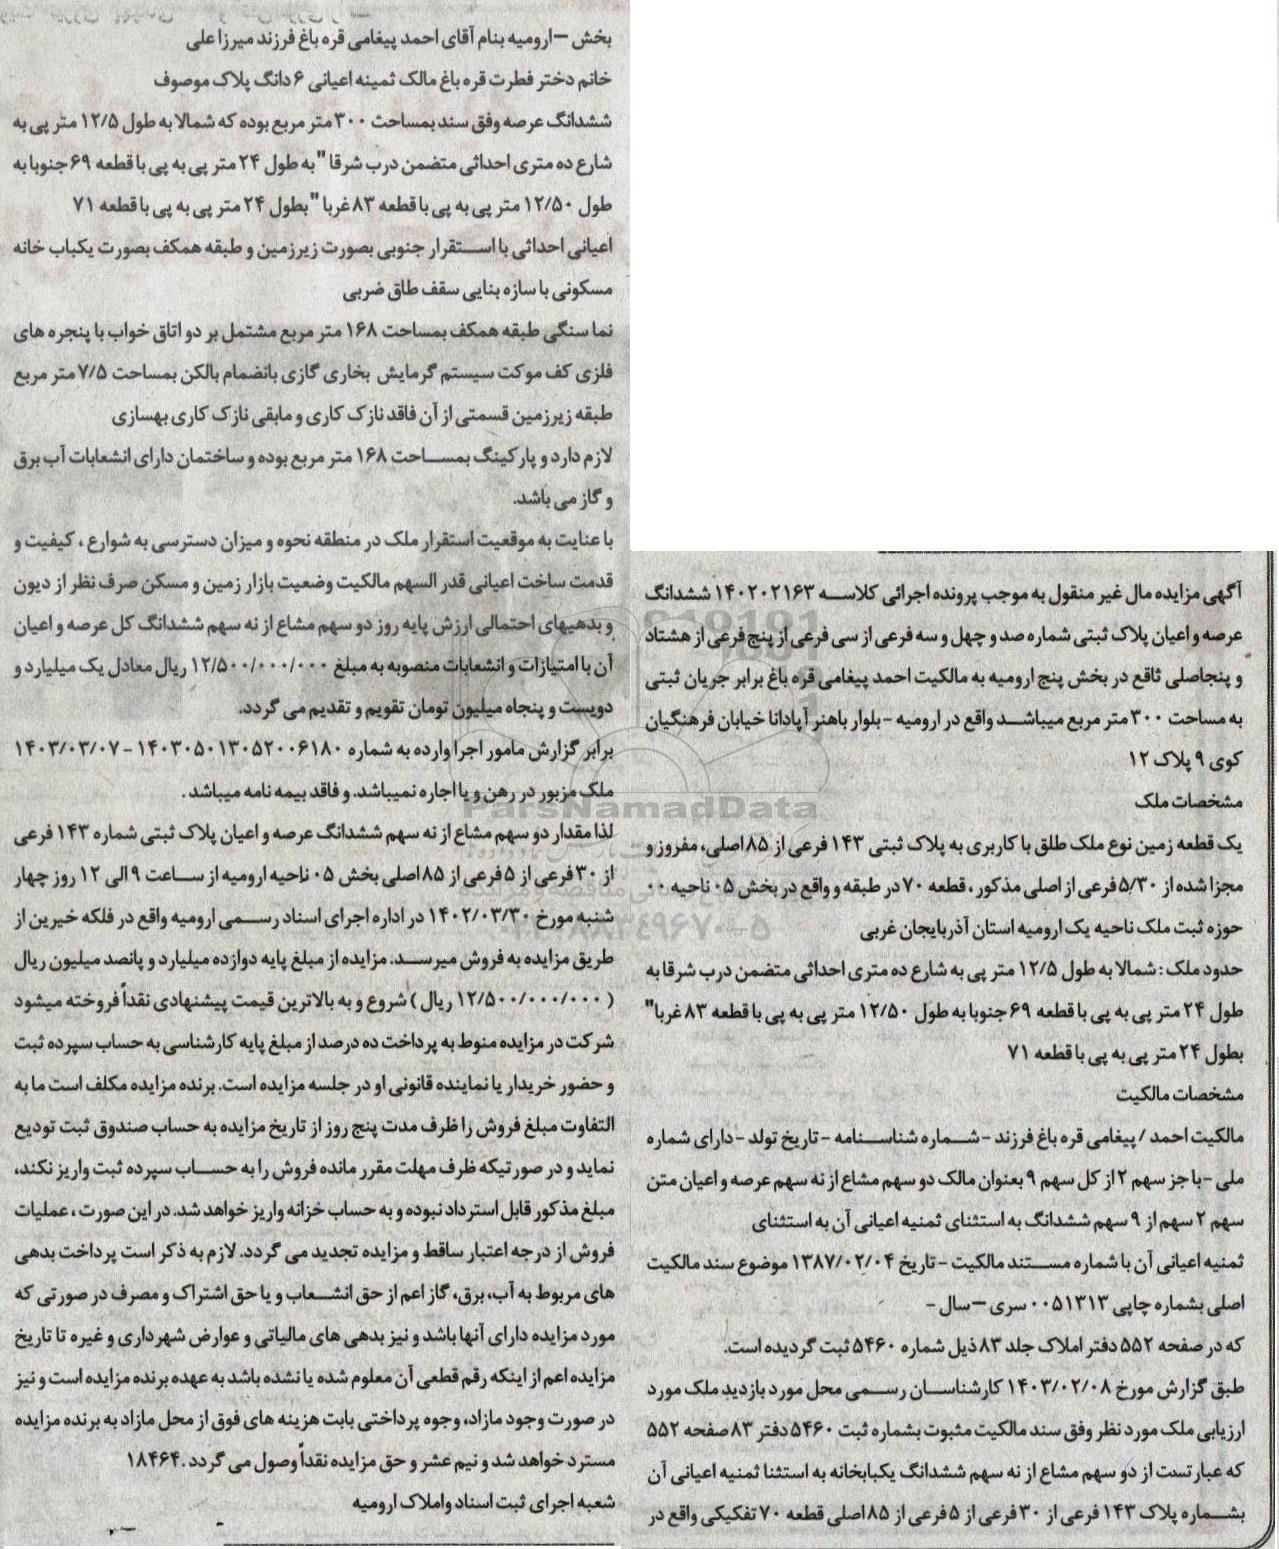 آگهی مزایده مال غیر منقول به موجب پرونده اجرائی کلاسه ۱۴۰۲۰۲۱۶۳ ششدانگ
عرصه و اعیان پلاک ثبتی شماره صد و چهل و سه فرعی از سی فرعی از پنج فرعی از هشتاد
و پنجاصلی ثاقع در بخش پنج ارومیه به مالکیت احمد پیغامی قره باغ برابر جریان ثبتی
به مساحت ۳۰۰ متر مربع میباشد واقع در ارومیه - بلوار باهنر آپادانا خیابان فرهنگیان
کوی ۹ پلاک ۱۲
مشخصات ملک
یک قطعه زمین نوع ملک طلق با کاربری به پلاک ثبتی ۱۴۳ فرعی از ۸۵ اصلی، مفروز و
مجزا شده از ۵/۳۰ فرعی از اصلی مذکور ، قطعه ۷۰ در طبقه و واقع در بخش ۰۵ ناحیه ۰۰
حوزه ثبت ملک ناحیه یک ارومیه استان آذربایجان غربی
حدود ملک : شمالا به طول ۱۲/۵ متر پی به شارع ده متری احداثی متضمن درب شرقا به
طول ۲۴ متر پی به پی با قطعه ۶۹ جنوبا به طول ۱۲/۵۰ متر پی به پی با قطعه ۸۳ غربا"
بطول ۲۴ متر پی به پی با قطعه ۷۱
مشخصات مالکیت
مالکیت احمد / پیغامی قره باغ فرزند - شماره شناسنامه - تاریخ تولد - دارای شماره
ملی - با جز سهم ۲ از کل سهم ۹ بعنوان مالک دو سهم مشاع از نه سهم عرصه و اعیان متن
سهم ۲ سهم از ۹ سهم ششدانگ به استثنای ثمنیه اعیانی آن به استثنای
ثمنیه اعیانی آن با شماره مستند مالکیت - تاریخ ۱۳۸۷/۰۲/۰۴ موضوع سند مالکیت
اصلی بشماره چاپی ۰۰۵۱۳۱۳ سری – سال -
که در صفحه ۵۵۲ دفتر املاک جلد ۸۳ ذیل شماره ۵۴۶۰ ثبت گردیده است.
طبق گزارش مورخ ۱۴۰۳/۰۲/۰۸ کارشناسان رسمی محل مورد بازدید ملک مورد
ارزیابی ملک مورد نظر وفق سند مالکیت مثبوت بشماره ثبت ۵۴۶۰ دفتر ۸۳ صفحه ۵۵۲
که عبارتست از دو سهم مشاع از نه سهم ششدانگ یکبابخانه به استثنا ثمنیه اعیانی آن
بشماره پلاک ۱۴۳ فرعی از ۳۰ فرعی از ۵ فرعی از ۸۵ اصلی قطعه ۷۰ تفکیکی واقع در
بخش – ارومیه بنام آقای احمد پیغامی قره باغ فرزند میرزا علی
خانم دختر فطرت قره باغ مالک ثمینه اعیانی ۶ دانگ پلاک موصوف
ششدانگ عرصه وفق سند بمساحت ۳۰۰ متر مربع بوده که شمالا به طول ۱۲/۵ متر پی به
شارع ده متری احداثی متضمن درب شرقا " به طول ۲۴ متر پی به پی با قطعه ۶۹ جنوبا به
طول ۱۲/۵۰ متر پی به پی با قطعه ۸۳ غربا " بطول ۲۴ متر پی به پی با قطعه ۷۱
اعیانی احداثی با استقرار جنوبی بصورت زیرزمین و طبقه همکف بصورت یکباب خانه
مسکونی با سازه بنایی سقف طاق ضربی
نما سنگی طبقه همکف بمساحت ۱۶۸ متر مربع مشتمل بر دو اتاق خواب با پنجره های
فلزی کف موکت سیستم گرمایش بخاری گازی بانضمام بالکن بمساحت ۷/۵ متر مربع
طبقه زیرزمین قسمتی از آن فاقد نازک کاری و مابقی نازک کاری بهسازی
لازم دارد و پارکینگ بمساحت ۱۶۸ متر مربع بوده و ساختمان دارای انشعابات آب برق
و گاز می باشد.
با عنایت به موقعیت استقرار ملک در منطقه نحوه و میزان دسترسی به شوارع ، کیفیت و
قدمت ساخت اعیانی قدر السهم مالکیت وضعیت بازار زمین و مسکن صرف نظر از دیون
و بدهیهای احتمالی ارزش پایه روز دو سهم مشاع از نه سهم ششدانگ کل عرصه و اعیان
آن با امتیازات و انشعابات منصوبه به مبلغ ۱۲/۵۰۰/۰۰۰/۰۰۰ ریال معادل یک میلیارد و
دویست و پنجاه میلیون تومان تقویم و تقدیم می گردد.
برابر گزارش مامور اجرا وارده به شماره ۱۴۰۳۰۵۰۱۳۰۵۲۰۰۶۱۸۰ - ۱۴۰۳/۰۳/۰۷
ملک مزبور در رهن و یا اجاره نمیباشد. و فاقد بیمه نامه میباشد .
لذا مقدار دو سهم مشاع از نه سهم ششدانگ عرصه و اعیان پلاک ثبتی شماره ۱۴۳ فرعی
از ۳۰ فرعی از ۵ فرعی از ۸۵ اصلی بخش ۰۵ ناحیه ارومیه از ساعت ۹ الی ۱۲ روز چهار
شنبه مورخ ۱۴۰۲/۰۳/۳۰ در اداره اجرای اسناد رسمی ارومیه واقع در فلکه خیرین از
طریق مزایده به فروش میرسد. مزایده از مبلغ پایه دوازده میلیارد و پانصد میلیون ریال
( ۱۲/۵۰۰/۰۰۰/۰۰۰ ریال ) شروع و به بالاترین قیمت پیشنهادی نقداً فروخته میشود
شرکت در مزایده منوط به پرداخت ده درصد از مبلغ پایه کارشناسی به حساب سپرده ثبت
و حضور خریدار یا نماینده قانونی او در جلسه مزایده است. برنده مزایده مکلف است ما به
التفاوت مبلغ فروش را ظرف مدت پنج روز از تاریخ مزایده به حساب صندوق ثبت تودیع
نماید و در صورتیکه ظرف مهلت مقرر مانده فروش را به حساب سپرده ثبت واریز نکند،
مبلغ مذکور قابل استرداد نبوده و به حساب خزانه واریز خواهد شد. در این صورت ، عملیات
فروش از درجه اعتبار ساقط و مزایده تجدید می گردد. لازم به ذکر است پرداخت بدهی
های مربوط به آب، برق، گاز اعم از حق انشعاب و یا حق اشتراک و مصرف در صورتی که
مورد مزایده دارای آنها باشد و نیز بدهی های مالیاتی و عوارض شهرداری و غیره تا تاریخ
مزایده اعم از اینکه رقم قطعی آن معلوم شده یا نشده باشد به عهده برنده مزایده است و نیز
در صورت وجود مازاد، وجوه پرداختی بابت هزینه های فوق از محل مازاد به برنده مزایده
مسترد خواهد شد و نیم عشر و حق مزایده نقداً وصول می گردد .۱۸۴۶۴
شعبه اجرای ثبت اسناد واملاک ارومیه
ParsNamadData
۰۲۱-۸۸۳۴۹۶۷۰-۵